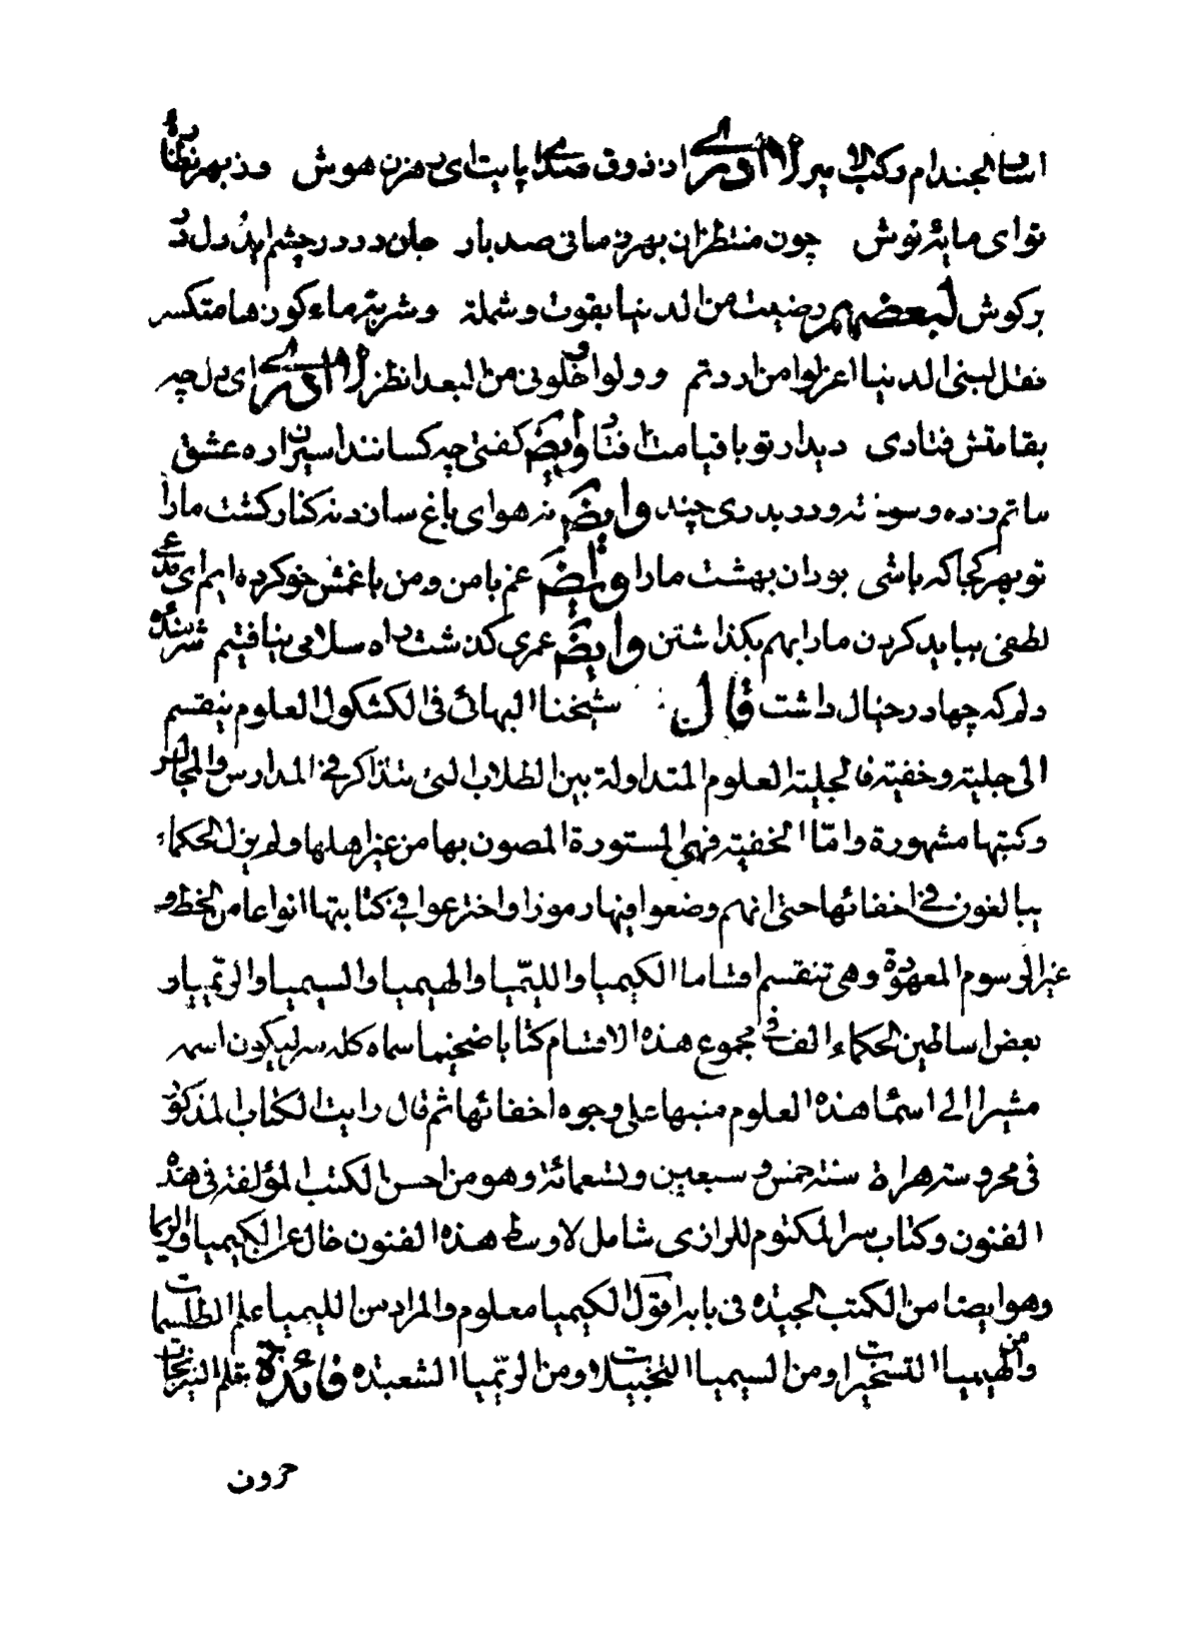 اسا الجندام وكتب الا مير لا أدرى از ذوق صداى پايت اى رهزن هوش وز بهر نظاره
تو اى مايه نوش چون منتظران بهر زمانى صد بار جان در در چشم ايد و دل در
بر كوش لبعضهم رضيت من الدنيا بقوت وشملة وشربة ماء كوزها متكسر
فقل لبنى الدنيا اعزلوا من اردتم وولوا وخلونى من البعد انظر لا أدرى اى دل چه
بقامتش فتادى ديدار تو با قيامت افتاد وايضا كفتى چه كسانند اسيران ره عشق
ماتم زده و سوخته و در بدرى چند وايضا نه هواى باغ سازد نه كنار كشت مارا
تو بهر كجا كه باشى بود ان بهشت مارا وايضا غم با من و من با غمش خو كرده ايم اى مدعى
لطفى ببايد كردن مارا بهم بكذاشتن وايضا عمرى كذشت راه سلامى نيافتيم شرمنده
دلم كه چها در خيال داشت قال شيخنا البهائى فى الكشكول العلوم ينقسم
الى جلية وخفية فالجلية العلوم المتداولة بين الطلاب التى تتذاكر فى المدارس والمجالس
وكتبها مشهورة وامّا الخفية فهى المستورة المصون بها من غير اهلها ولم يزل الحكماء
يبالغون فى اخفائها حتى انهم وضعوا فيها رموزا واخترعوا فى كتابتها انواعا من الخط و
غير الرسوم المعهودة وهى تنقسم اقساما الكيميا والليميا والهيميا والسيميا والريميا و
بعض اساطين الحكماء الف فى مجموع هذه الاقسام كتابا ضخيما سماه كله سر ليكون اسمه
مشيرا الى اسماء هذه العلوم منبها على وجوه اخفائها ثم قال رايت الكتاب المذكور
فى محروسة هراة سنة خمس و سبعين وتسعمائة وهو من احسن الكتب المؤلفة فى هذه
الفنون وكتاب سر المكتوم للرازى شامل لاوسط هذه الفنون خال عن الكيميا والريميا
وهو ايضا من الكتب الجيده فى بابه اقول الكيميا معلوم والمراد من الليميا علم الطلسمات
ومن الهيميا التسخيرات ومن السيميا التخييلات ومن الريميا الشعبده فائدة بقلم النيرنجات
حرون